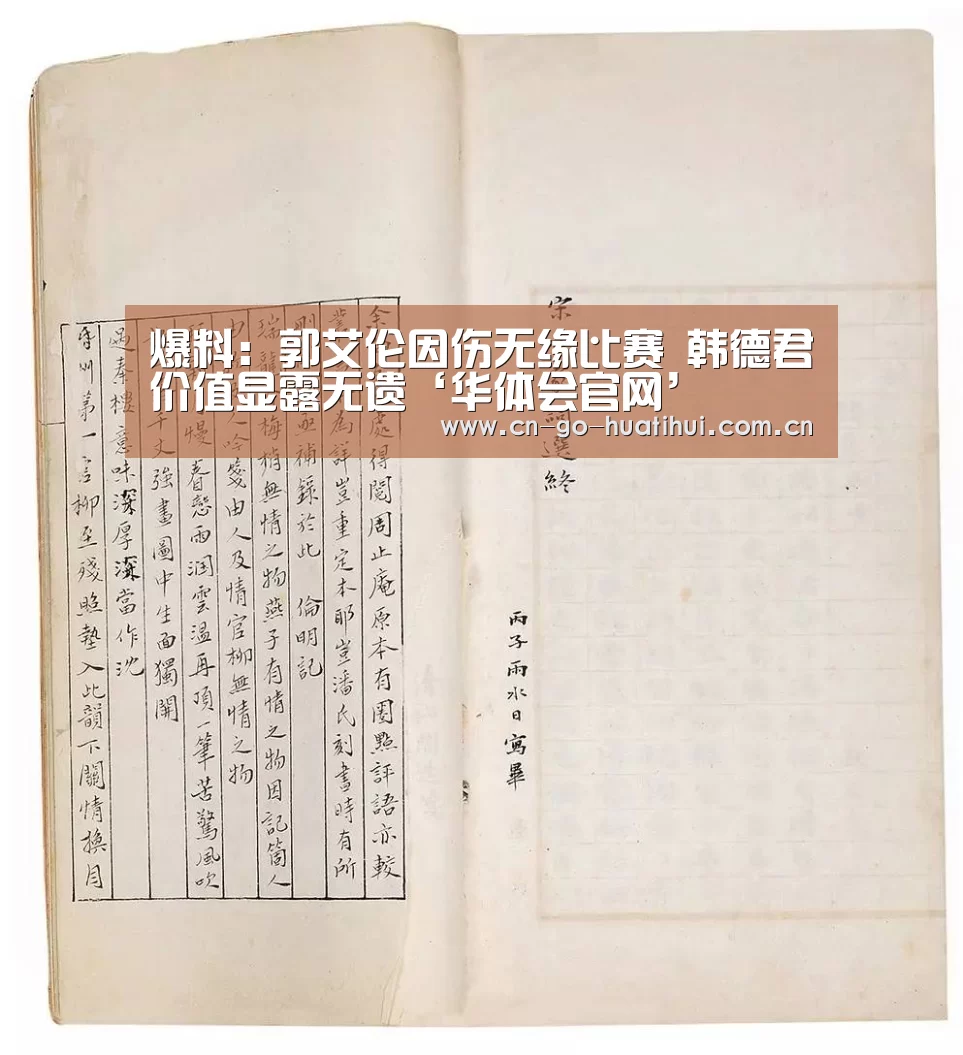 爆料：郭艾伦因伤无缘比赛 韩德君
价值显露无遗‘华体会官网’
www.cn-go-huatihui.com.cn
宋 選終
丙子雨水日寫畢
余 處得閱周止庵原本有圈點評語亦較
為詳豈重定本耶豈潘氏刻書時有所
刪 補錄於此 倫明記
瑞龍 梅梢無情之物燕子有情之物因記箇人
人吟箋由人及情官柳無情之物
慢 春愁雨潤雲溫再頂一筆苦驚風吹
千丈強畫圖中生面獨開
過秦樓意味深厚深當作沈
州第一言柳至殘照墊入此韻下關情換月